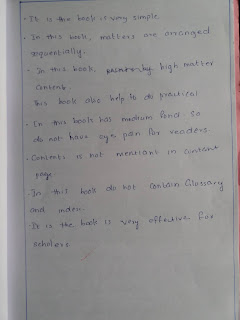 · It is the book is very simple
· In this book, matters are arranged
sequentially.
· In this book, high matter
content.
This book also help to do practical
· In this book has medium fond. So
do not have eye pain for readers.
· Contents is not mentions in content
page.
· In this book do not contain Glossary
and index.
· It is the book is very effective for
scholars